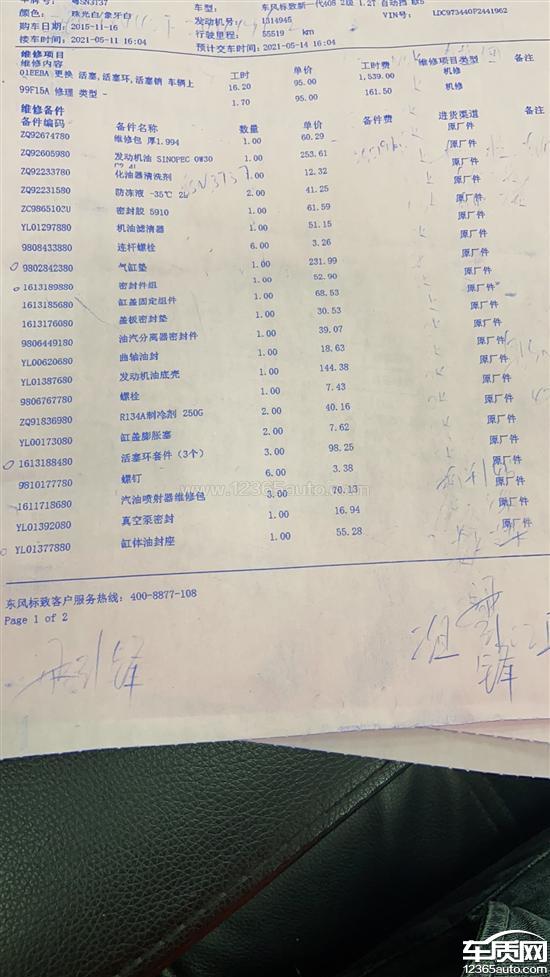 车牌号: 粤SN3737 车型: 东风标致新一代408 2级 1.2T 自动挡 欧5
颜色: 珠光白/象牙白 发动机号: 1314945 VIN号: LDC973440F2441962
购车日期: 2015-11-16 行驶里程: 55519 km
接车时间: 2021-05-11 16:04 预计交车时间: 2021-05-14 16:04
维修项目
维修内容 工时 单价 工时费 维修项目类型 备注
01EEBA 更换 活塞,活塞环,活塞销 车辆上 16.20 95.00 1,539.00 机修
99F15A 修理 类型 - 1.70 95.00 161.50 机修
维修备件
备件编码 备件名称 数量 单价 备件费 进货渠道 备注
ZQ92674780 维修包 厚1.994 1.00 60.29 原厂件
ZQ92605980 发动机油 SINOPEC 0W30 1.00 253.61 原厂件
ZQ92233780 化油器清洗剂 1.00 12.32 原厂件
ZQ92231580 防冻液 -35℃ 2L 2.00 41.25 原厂件
ZC9865102U 密封胶 5910 1.00 61.59 原厂件
YL01297880 机油滤清器 1.00 51.15 原厂件
9808433880 连杆螺栓 6.00 3.26 原厂件
9802842380 气缸垫 1.00 231.99 原厂件
1613189880 密封件组 1.00 52.90 原厂件
1613185680 缸盖固定组件 1.00 68.53 原厂件
1613176080 盖板密封垫 1.00 30.53 原厂件
9806449180 油汽分离器密封件 1.00 39.07 原厂件
YL00620680 曲轴油封 1.00 18.63 原厂件
YL01387680 发动机油底壳 1.00 144.38 原厂件
9806767780 螺栓 1.00 7.43 原厂件
ZQ91836980 R134A制冷剂 250G 2.00 40.16 原厂件
YL00173080 缸盖膨胀塞 2.00 7.62 原厂件
1613188480 活塞环套件（3个） 3.00 98.25 原厂件
9810177780 螺钉 6.00 3.38 原厂件
1611718680 汽油喷射器维修包 3.00 70.13 原厂件
YL01392080 真空泵密封 1.00 16.94 原厂件
YL01377880 缸体油封座 1.00 55.28 原厂件
www.12365auto.com
东风标致客户服务热线: 400-8877-108
Page 1 of 2
车质网
12365auto.com